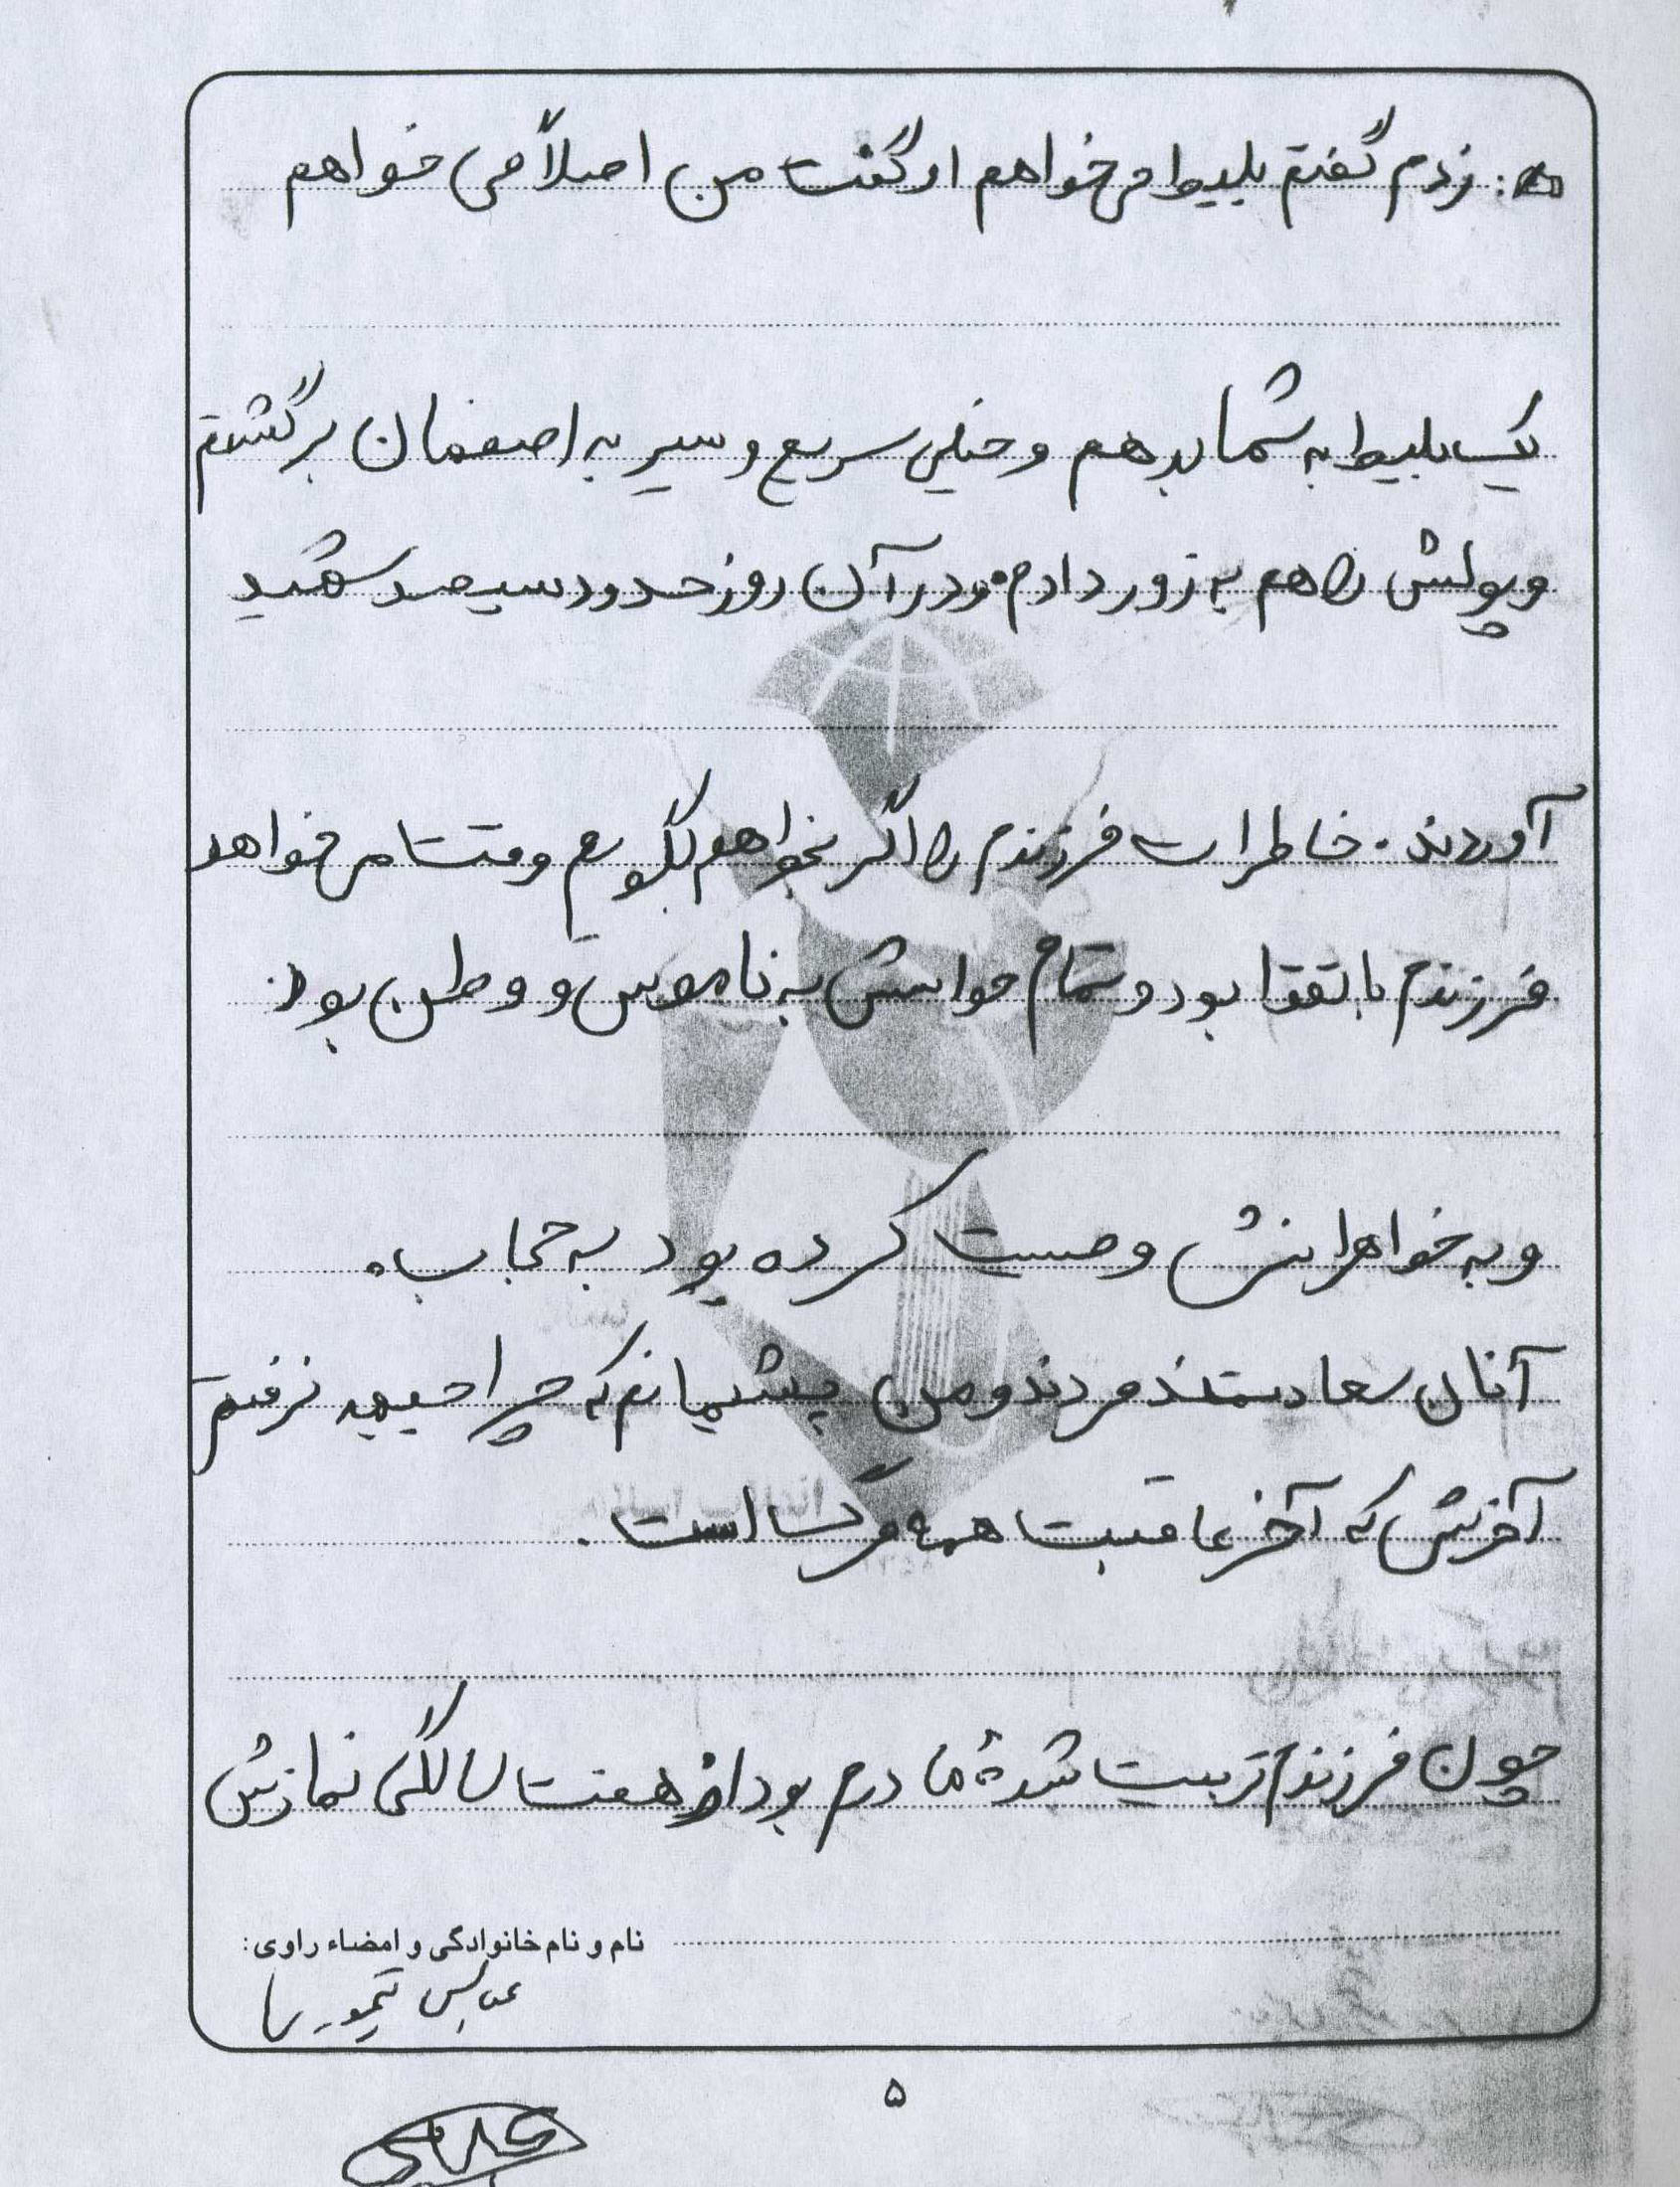 زدم گفتم بلیط می خواهم او گفت من اصلاً می خواهم
یک بلیط به شما بدهم و خیلی سریع و سیر به اصفهان برگشتم
و پولش را هم به زور دادم و در آن روز حدود سیصد شهید
آوردند. خاطرات فرزندم را اگر بخواهم بگویم وقت می خواهد
فرزندم با تقوا بود و تمام حواسش به ناموس و وطن بود.
و به خواهرانش وصیت کرده بود به حجاب.
آنان سعادتمند مردند و من پشیمانم که چرا جبهه نرفتم
آخرش که آخر عاقبت همه مرگ است.
چون فرزندم تربیت شدهٔ مادرم بود از هفت سالگی نمازش
نام و نام خانوادگی و امضاء راوی:
عباس تیموری
۵